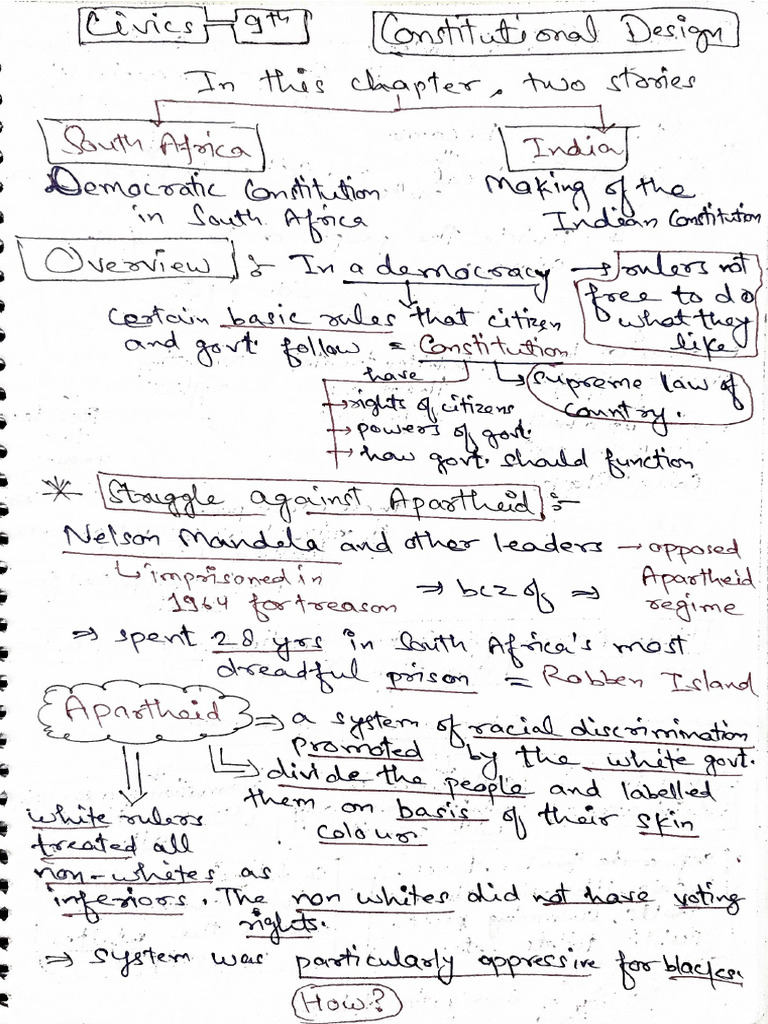 Civics 9th Constitutional Design
In this chapter, two stories
South Africa India
Democratic Constitution Making of the
in South Africa Indian Constitution
Overview :- In a democracy → rulers not
free to do
what they
like
certain basic rules that citizen
and govt. follow = Constitution
have
↳ supreme law of
country.
→ rights of citizens
→ powers of govt.
→ how govt. should function
* Struggle against Apartheid :-
Nelson Mandela and other leaders → opposed
Apartheid
regime
↳ imprisoned in
1964 for treason ⇒ bcz of ⇒
⇒ spent 28 yrs in South Africa's most
dreadful prison = Robben Island
Apartheid ⇒ a system of racial discrimination
promoted by the white govt.
divide the people and labelled
them on basis of their skin
colour.
white rulers
treated all
non-whites as
inferiors. The non whites did not have voting
rights.
⇒ system was particularly oppressive for blacks.
How?